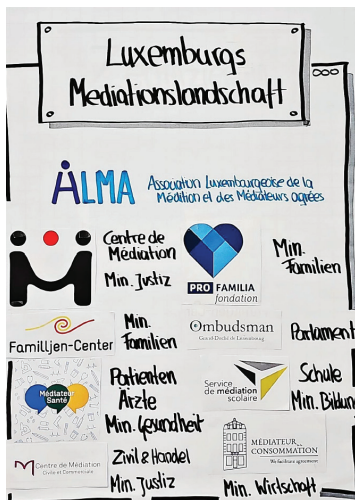 Luxemburgs
Mediationslandschaft
ALMA
Association Luxembourgeoise de la
Médition et des Médiateurs agréés
Centre de
Médiation
Min. Justiz
PRO FAMILIA
fondation
Min.
Familien
Familljen-Center
Min.
Familien
Ombudsman
Parlament
Médiateur
Santé
Patienten
Ärzte
Min. Gesundheit
Service
de médiation
scolaire
Schule
Min. Bildun
Centre de Médiation
Civile et Commerciale
Zivil & Handel
Min. Justiz
MÉDIATEUR
CONSOMMATION
We facilitate agreement
Min. Wirtschaft